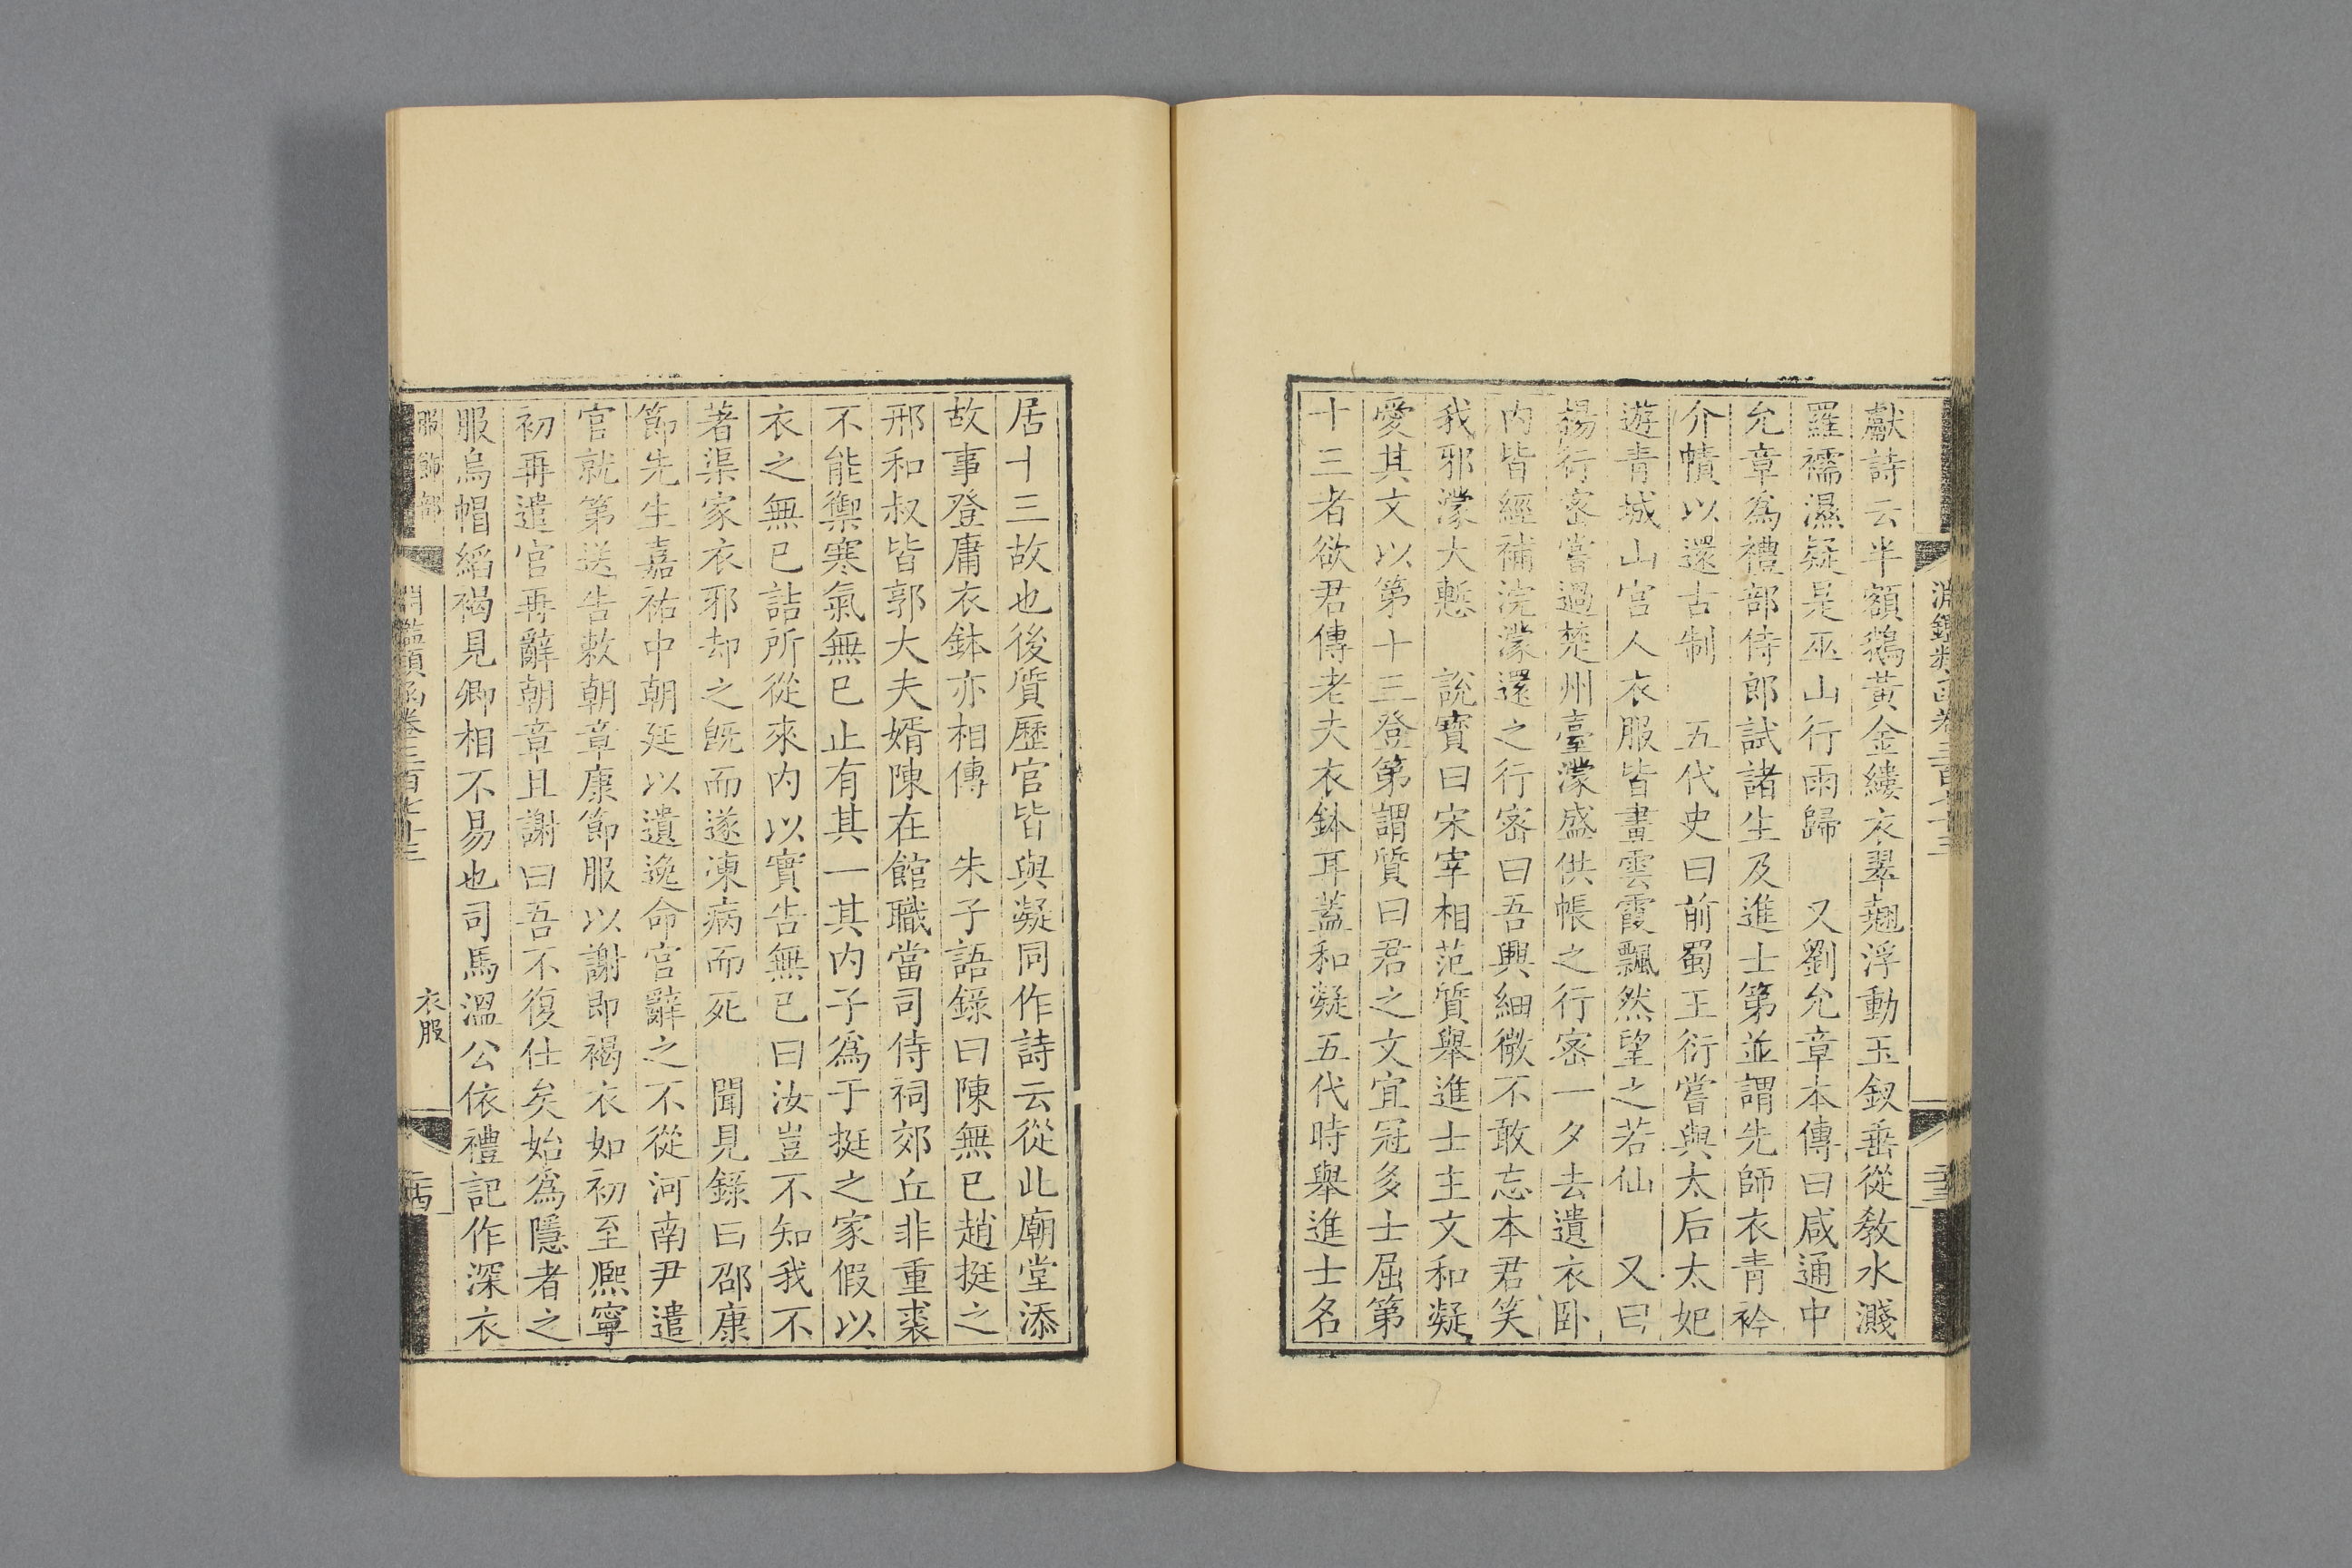 獻詩云半額鵝黃金縷衣翠翹浮動玉釵垂從教水濺
羅襦濕疑是巫山行雨歸　又劉允章本傳曰咸通中
允章爲禮部侍郎試諸生及進士第並謂先師衣青衿
介幘以還古制　五代史曰前蜀王衍嘗與太后太妃
遊青城山宮人衣服皆畫雲霞飄然望之若仙　又曰
楊行密嘗過楚州臺濛盛供帳之行密一夕去遺衣卧
内皆經補浣濛還之行密曰吾興細微不敢忘本君笑
我邪濛大慙　説寶曰宋宰相范質舉進士主文和凝
愛其文以第十三登第謂質曰君之文宜冠多士屈第
十三者欲君傳老夫衣鉢耳蓋和凝五代時舉進士名
淵鑑類函卷三百七十三
居十三故也後質歷官皆與凝同作詩云從此廟堂添
故事登庸衣鉢亦相傳　朱子語錄曰陳無已趙挺之
邢和叔皆郭大夫婿陳在館職當司侍祠郊丘非重裘
不能禦寒氣無已止有其一其内子爲于挺之家假以
衣之無已詰所從來内以實告無已曰汝豈不知我不
著渠家衣邪却之旣而遂凍病而死　聞見錄曰邵康
節先生嘉祐中朝廷以遺逸命官辭之不從河南尹遣
官就第送告敕朝章康節服以謝即褐衣如初至熈寧
初再遣官再辭朝章且謝曰吾不復仕矣始爲隱者之
服烏帽縚褐見卿相不易也司馬溫公依禮記作深衣
服飾部
淵鑑類函卷三百七十三
衣服
二十四